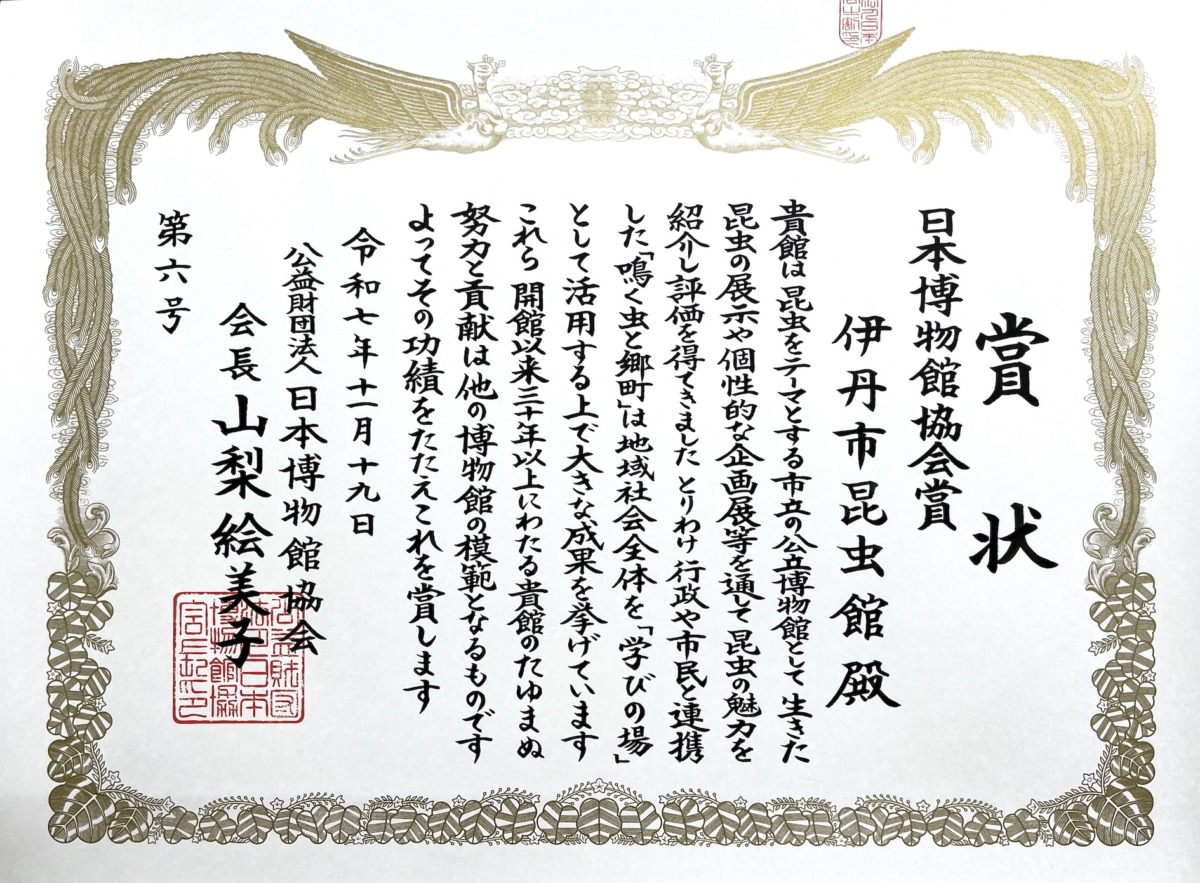 賞状
日本博物館協会賞
伊丹市昆虫館殿
貴館は昆虫をテーマとする市立の公立博物館として生きた
昆虫の展示や個性的な企画展等を通して昆虫の魅力を
紹介し評価を得てきました とりわけ行政や市民と連携
した「鳴く虫と郷町」は地域社会全体を「学びの場」
として活用する上で大きな成果を挙げています
これら 開館以来三十年以上にわたる貴館のたゆまぬ
努力と貢献は他の博物館の模範となるものです
よってその功績をたたえこれを賞します
令和七年十一月十九日
公益財団法人日本博物館協会
会長山梨絵美子
第六号
公益財団
法人日本
博物館協
会長之印